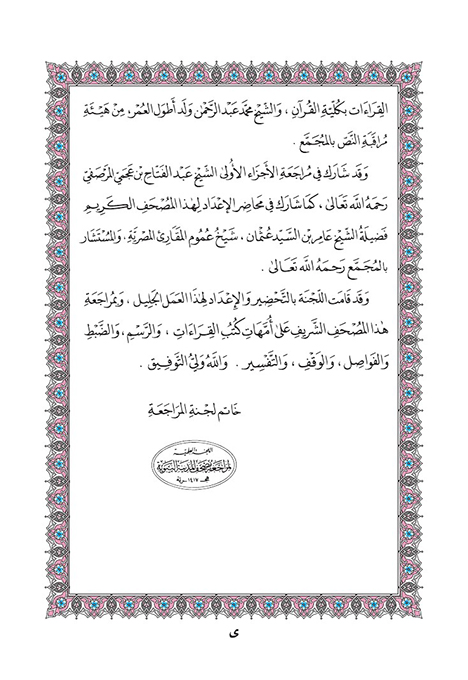 القِرَاءَات بِكُلِّيَّةِ القُرْآنِ، وَالشَّيْخ مُحَمَّد عَبد الرَّحْمٰن وَلَد أَطْوَل العُمُر، مِنْ هَيْئَةِ
مُرَاقَبَةِ النَّصِّ بِالمُجَمَّعِ .
وَقَد شَارَك فِي مُرَاجَعَةِ الأَجْزَاءِ الأُولَىٰ الشَّيْخ عَبد الفَتَّاح بن عَجَمِي المَرْصَفِيّ
رَحِمَهُ اللَّه تَعَالَىٰ، كَمَا شَارَك فِي مَحَاضِرِ الإِعْدَادِ لِهٰذَا المُصْحَف الكَرِيمِ
فَضِيلَةُ الشَّيْخ عَامِر بن السَّيِّد عُثْمَان، شَيْخُ عُمُومِ المَقَارِئِ المِصْرِيَّةِ، وَالمُسْتَشَار
بِالمُجَمَّعِ رَحِمَهُ اللَّه تَعَالَىٰ .
وَقَد قَامَتِ اللَّجْنَة بِالتَّحْضِيرِ وَالإِعْدَادِ لِهٰذَا العَمَلِ الجَلِيلِ، وَبِمُرَاجَعَةِ
هٰذَا المُصْحَفِ الشَّرِيفِ عَلَىٰ أُمَّهَاتِ كُتُبِ القِرَاءَاتِ، وَالرَّسْمِ، وَالضَّبْطِ
وَالفَوَاصِلِ، وَالوَقْفِ، وَالتَّفْسِيرِ . وَاللَّهُ وَلِيُّ التَّوْفِيقِ .
خَاتم لَجْنَةِ المُرَاجَعَةِ
اللجنة العلمية
لمراجعة مصحف المدينة النبوية
ى